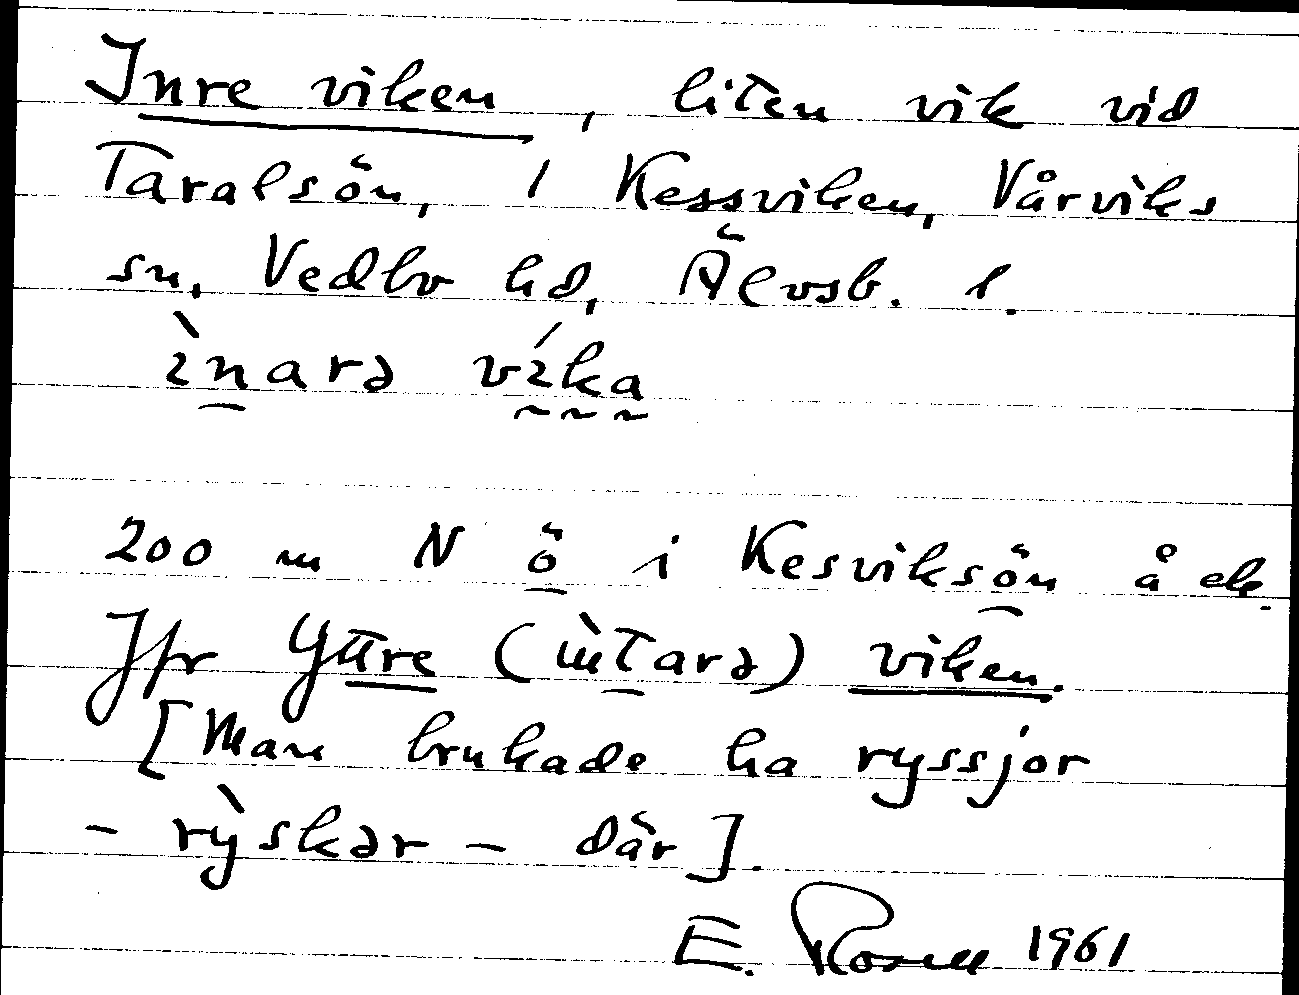 Inre viken, liten vik vid
Taralsön, i Kessviken, Vårviks
sn, Vedbo hd, Älvsb. l.
ìnarə víka
200 m N ö i Kesviksön å ek.
Jfr Yttre (ìtarə) viken.
[Man brukade ha ryssjor
- rỳskər - där].
E. Rosell 1961